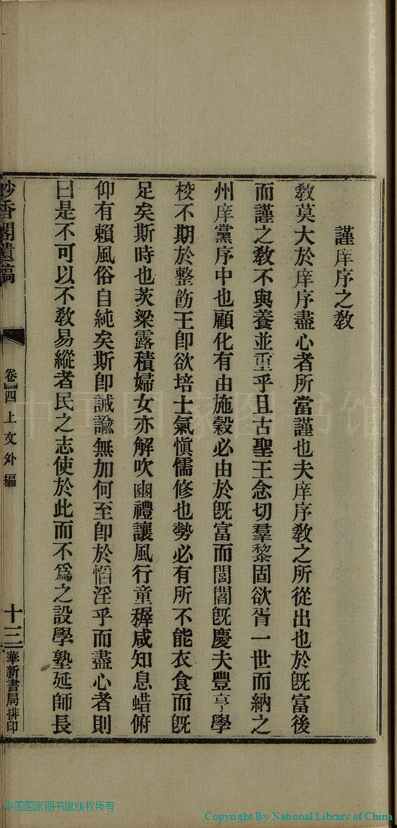 謹庠序之敎
敎莫大於庠序盡心者所當謹也夫庠序敎之所從出也於旣富後
而謹之敎不與養並重乎且古聖王念切羣黎固欲胥一世而納之
州庠黨序中也顧化有由施穀必由於旣富而閭閻旣慶夫豐亨學
校不期於整飭王卽欲培士氣愼儒修也勢必有所不能衣食而旣
足矣斯時也茨梁露積婦女亦解吹豳禮讓風行童穉咸知息蜡俯
仰有賴風俗自純矣斯卽誡諭無加何至卽於慆淫乎而盡心者則
曰是不可以不敎易縱者民之志使於此而不爲之設學塾延師長
妙香閣遺稿
卷四上文外編
十三
華新書局排印
中国国家图书馆版权所有
Copyright By National Library of China